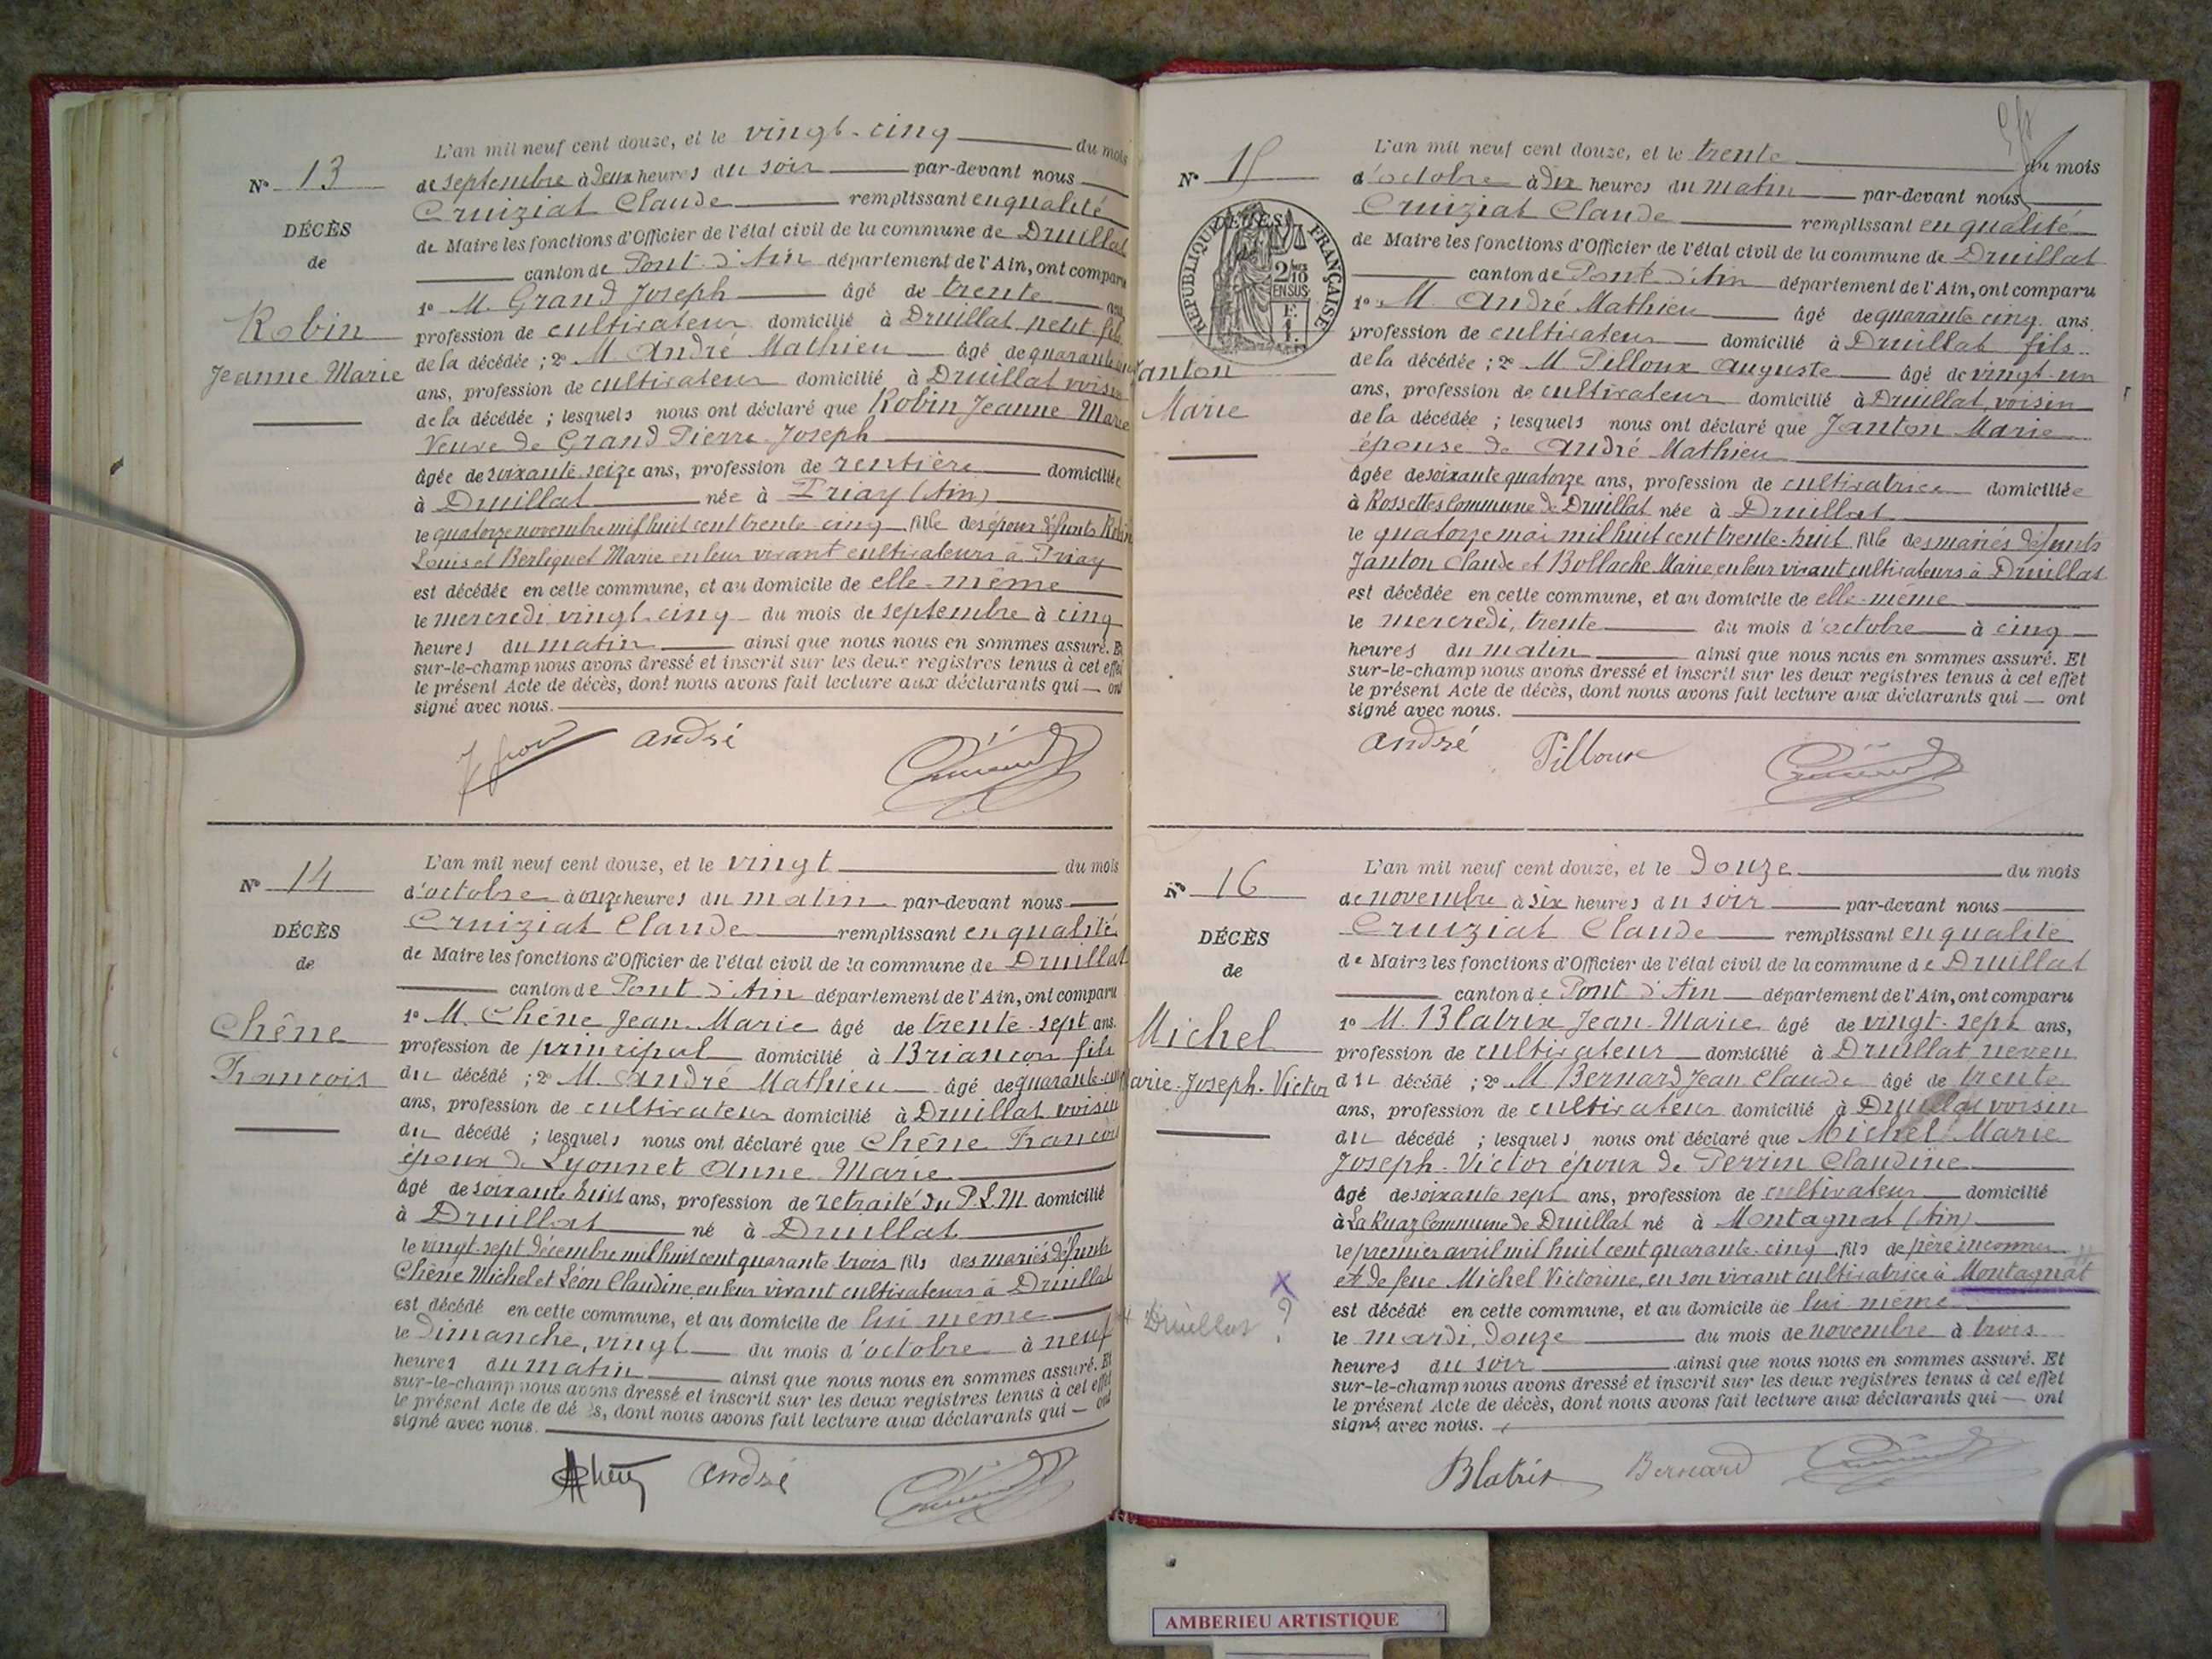 N° 13
DÉCÈS
de
Robin
Jeanne Marie
L'an mil neuf cent douze, et le vingt-cinq du mois
de septembre à deux heures du soir par-devant nous
Cruiziat Claude remplissant en qualité
de Maire les fonctions d'Officier de l'état civil de la commune de Druillat
canton de Pont d'Ain département de l'Ain, ont comparu
1° M. Grand Joseph âgé de trente ans,
profession de cultivateur domicilié à Druillat petit fils
de la décédée ; 2° M. André Mathieu âgé de quarante
ans, profession de cultivateur domicilié à Druillat voisin
de la décédée ; lesquels nous ont déclaré que Robin Jeanne Marie
Veuve de Grand Pierre Joseph
âgée de soixante seize ans, profession de rentière domiciliée
à Druillat née à Priay (Ain)
le quatorze novembre mil huit cent trente-cinq fille des époux défunts Robin
Louis et Berliquet Marie en leur vivant cultivateurs à Priay
est décédée en cette commune, et au domicile de elle-même
le mercredi vingt-cinq du mois de septembre à cinq
heures du matin ainsi que nous nous en sommes assuré. Et
sur-le-champ nous avons dressé et inscrit sur les deux registres tenus à cet effet
le présent Acte de décès, dont nous avons fait lecture aux déclarants qui ont
signé avec nous.
André
N° 14
DÉCÈS
de
Chêne
François
L'an mil neuf cent douze, et le vingt du mois
d'octobre à onze heures du matin par-devant nous
Cruiziat Claude remplissant en qualité
de Maire les fonctions d'Officier de l'état civil de la commune de Druillat
canton de Pont d'Ain département de l'Ain, ont comparu
1° M. Chêne Jean-Marie âgé de trente-sept ans.
profession de principal domicilié à Briançon fils
du décédé ; 2° M. André Mathieu âgé de quarante-cinq
ans, profession de cultivateur domicilié à Druillat voisin
du décédé ; lesquels nous ont déclaré que Chêne François
époux de Lyonnet Anne Marie
âgé de soixante huit ans, profession de retraité du P.L.M. domicilié
à Druillat né à Druillat
le vingt-sept décembre mil huit cent quarante trois fils des mariés défunts
Chêne Michel et Léon Claudine, en leur vivant cultivateurs à Druillat
est décédé en cette commune, et au domicile de lui même
le Dimanche, vingt du mois d'octobre à neuf
heures du matin ainsi que nous nous en sommes assuré. Et
sur-le-champ nous avons dressé et inscrit sur les deux registres tenus à cet effet
le présent Acte de décès, dont nous avons fait lecture aux déclarants qui ont
signé avec nous.
André
N° 15
RÉPUBLIQUE FRANÇAISE
2/10 EN SUS
Janton
Marie
L'an mil neuf cent douze, et le trente du mois
d'octobre à dix heures du matin par-devant nous
Cruiziat Claude remplissant en qualité
de Maire les fonctions d'Officier de l'état civil de la commune de Druillat
canton de Pont d'Ain département de l'Ain, ont comparu
1° M. André Mathieu âgé de quarante cinq ans.
profession de cultivateur domicilié à Druillat fils
de la décédée ; 2° M. Pilloux Auguste âgé de vingt-un
ans, profession de cultivateur domicilié à Druillat, voisin
de la décédée ; lesquels nous ont déclaré que Janton Marie
épouse de André Mathieu
âgée de soixante quatorze ans, profession de cultivatrice domiciliée
à Rossettes Commune de Druillat née à Druillat
le quatorze mai mil huit cent trente-huit fille des mariés défunts
Janton Claude et Bollache Marie, en leur vivant cultivateurs à Druillat
est décédée en cette commune, et au domicile de elle-même
le mercredi, trente du mois d'octobre à cinq
heures du matin ainsi que nous nous en sommes assuré. Et
sur-le-champ nous avons dressé et inscrit sur les deux registres tenus à cet effet
le présent Acte de décès, dont nous avons fait lecture aux déclarants qui ont
signé avec nous.
André Pilloux
N° 16
DÉCÈS
de
Michel
Marie-Joseph-Victor
X
# Druillat ?
L'an mil neuf cent douze, et le Douze du mois
de novembre à six heures du soir par-devant nous
Cruiziat Claude remplissant en qualité
de Maire les fonctions d'Officier de l'état civil de la commune de Druillat
canton de Pont d'Ain département de l'Ain, ont comparu
1° M. Blatrix Jean-Marie âgé de vingt-sept ans,
profession de cultivateur domicilié à Druillat neveu
du décédé ; 2° M. Bernard Jean Claude âgé de trente
ans, profession de cultivateur domicilié à Druillat voisin
du décédé ; lesquels nous ont déclaré que Michel Marie
Joseph-Victor époux de Perrin Claudine
âgé de soixante sept ans, profession de cultivateur domicilié
à La Ruaz Commune de Druillat né à Montagnat (Ain)
le premier avril mil huit cent quarante-cinq, fils de père inconnu
et de feue Michel Victorine, en son vivant cultivatrice à Montagnat #
est décédé en cette commune, et au domicile de lui-même
le mardi, douze du mois de novembre à trois
heures du soir ainsi que nous nous en sommes assuré. Et
sur-le-champ nous avons dressé et inscrit sur les deux registres tenus à cet effet
le présent Acte de décès, dont nous avons fait lecture aux déclarants qui ont
signé avec nous.
Blatrix Bernard
AMBERIEU ARTISTIQUE